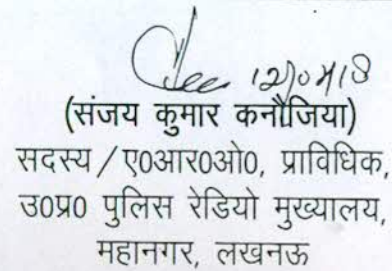 12/04/18
(संजय कुमार कनौजिया)
सदस्य/ए0आर0ओ0, प्राविधिक,
उ0प्र0 पुलिस रेडियो मुख्यालय,
महानगर, लखनऊ